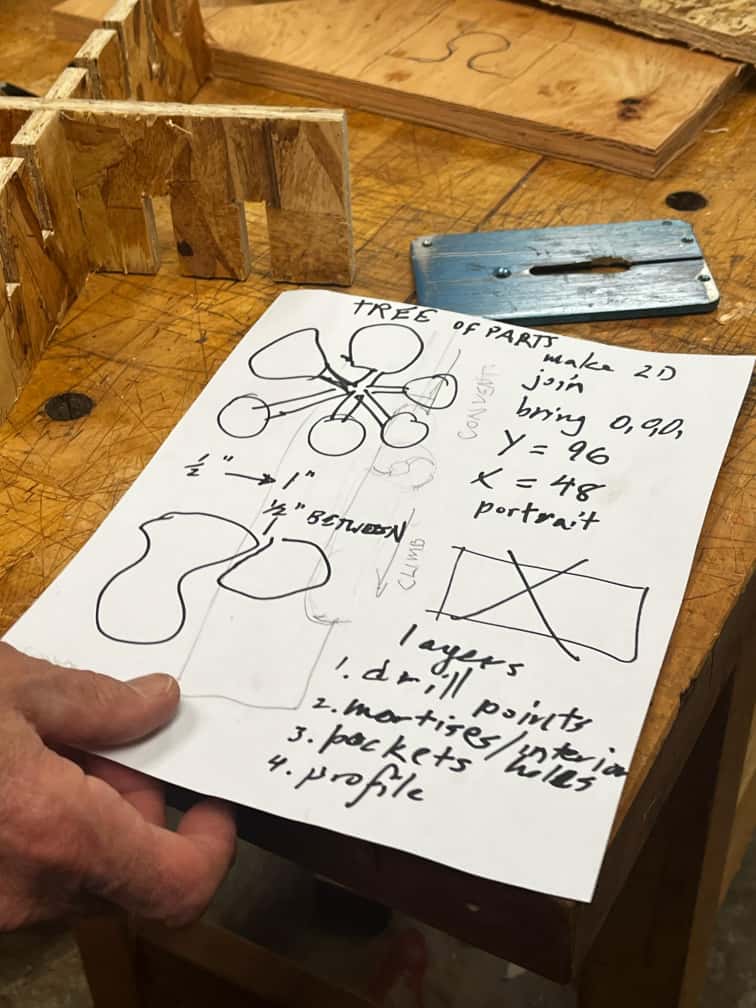 TREE OF PARTS
make 2D
join
bring 0,0,0,
Y = 96
X = 48
portrait
CONVENT.
1/2" → 1"
1/2" BETWEEN
CLIMB
layers
1. drill points
2. mortises/interior holes
3. pockets
4. profile